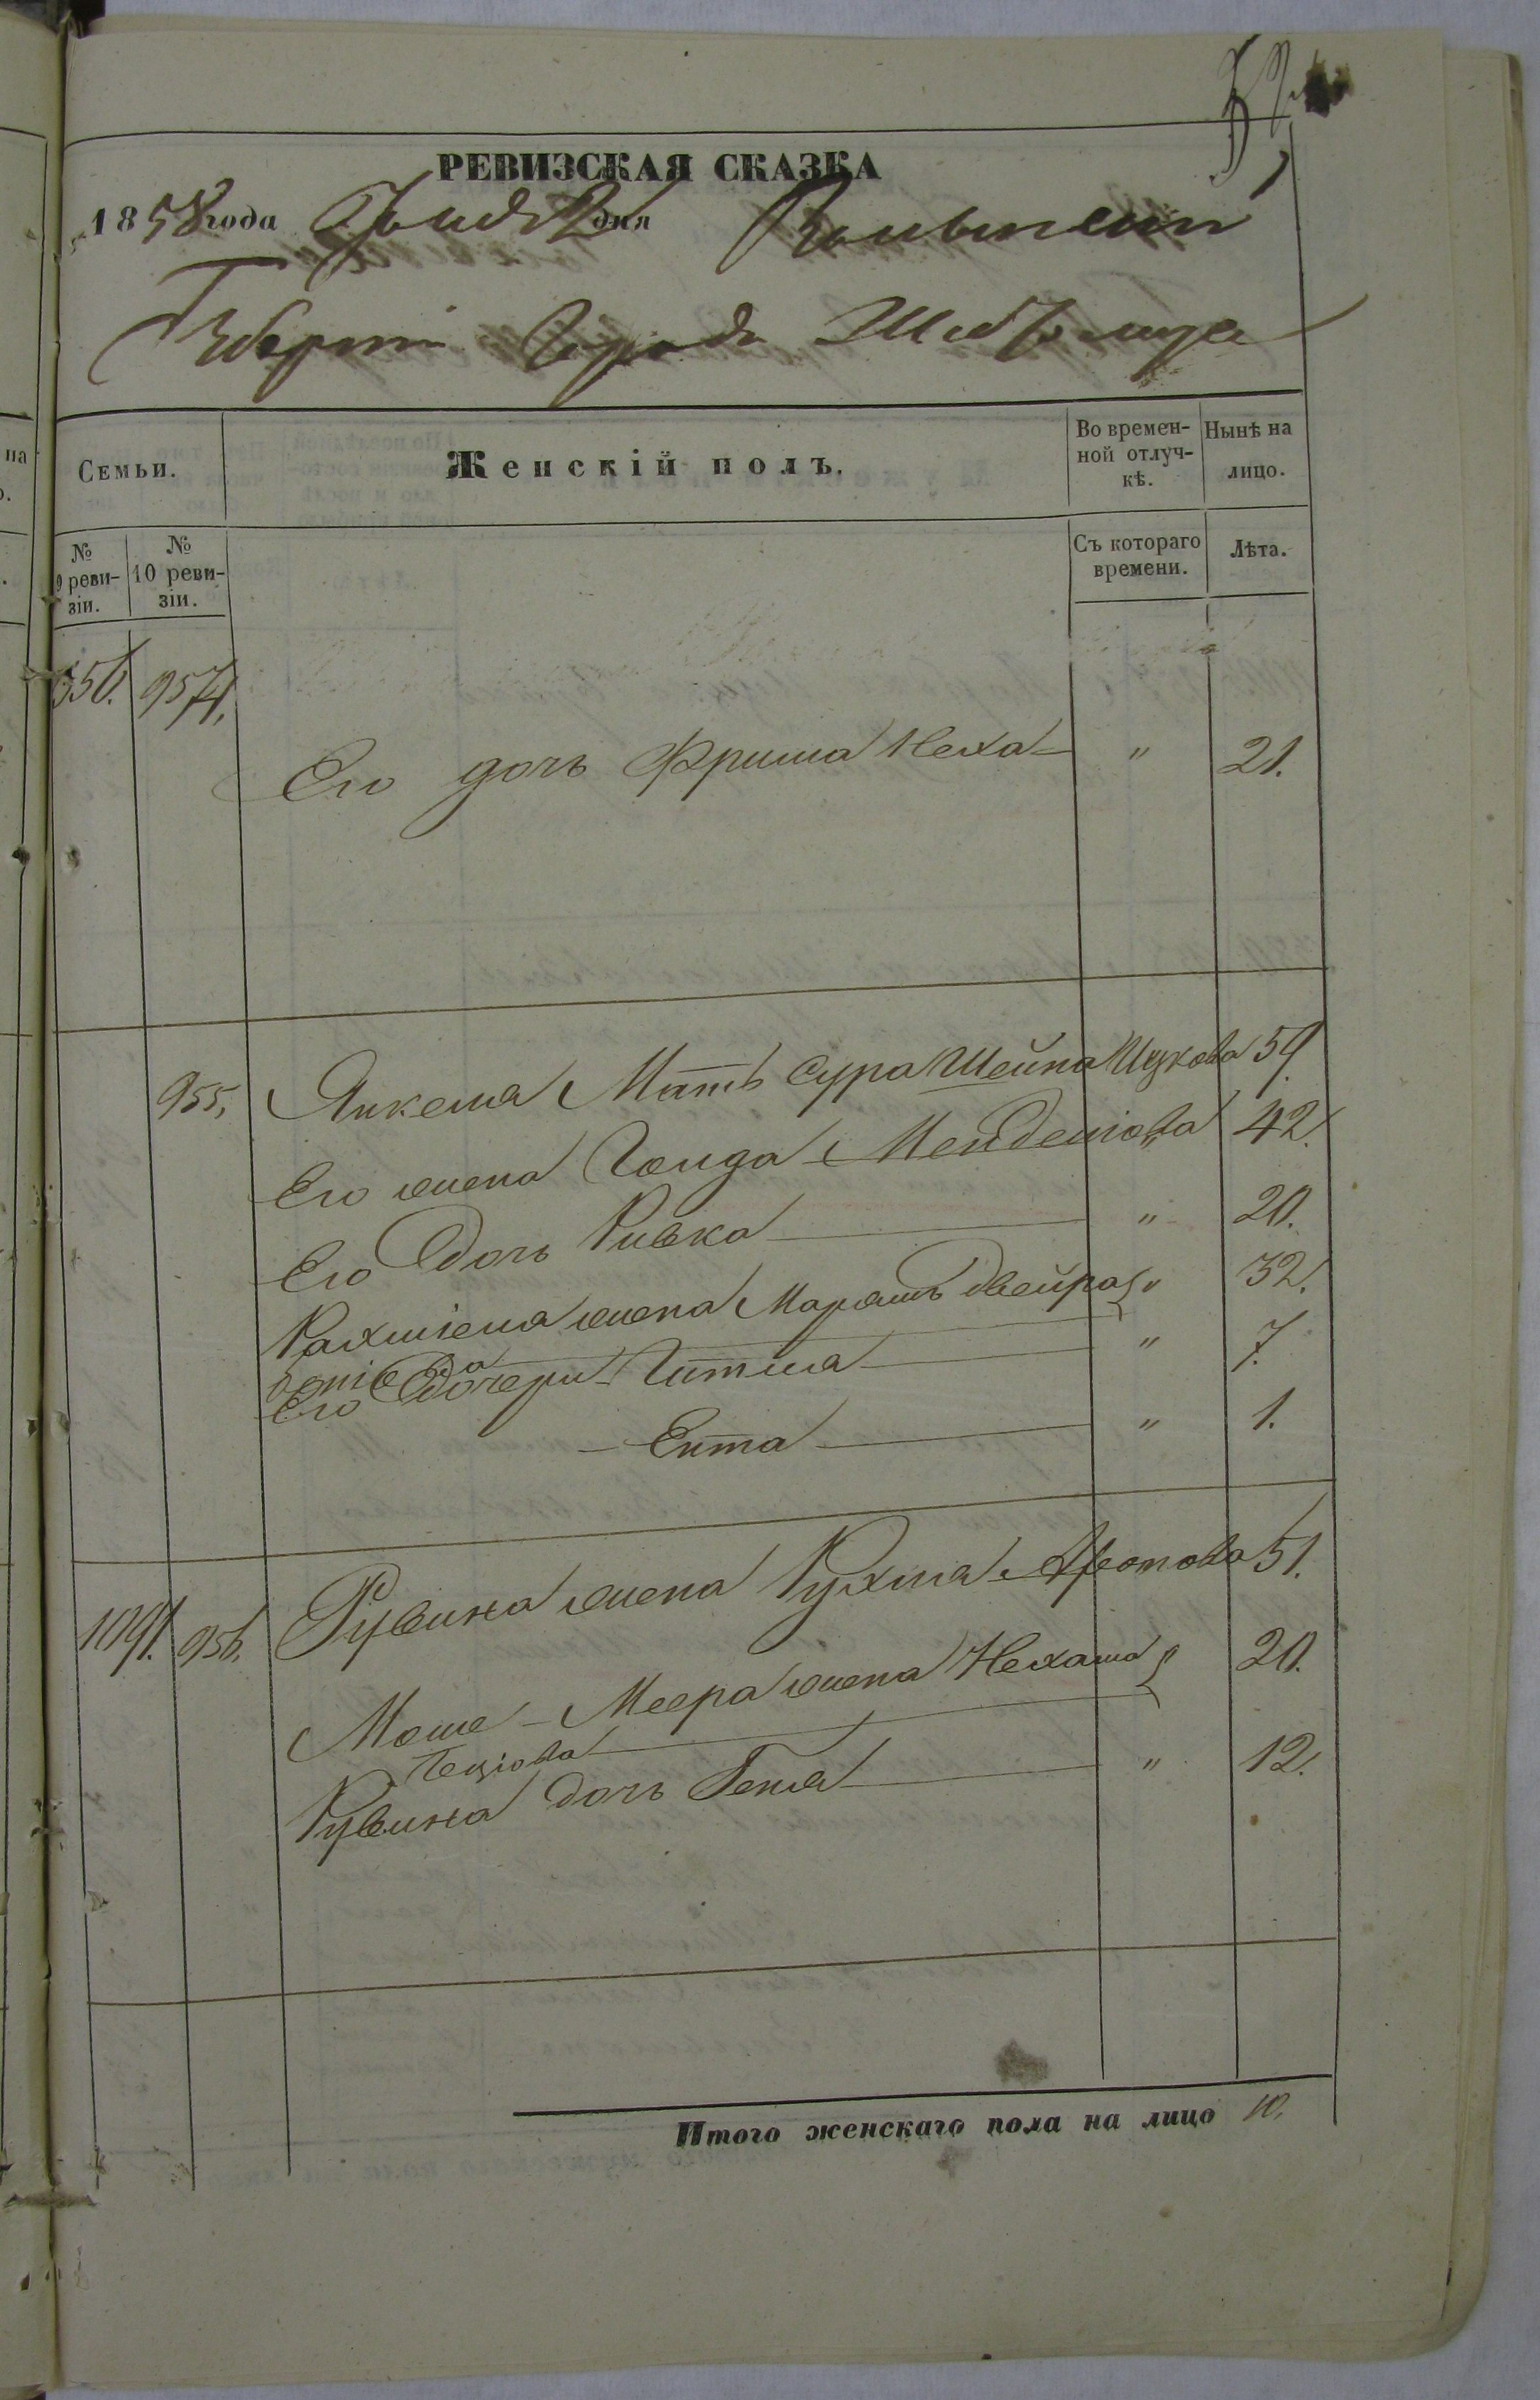 РЕВИЗСКАЯ СКАЗКА
1858 года дня
Губерніи Города
Семьи.
Женскій полъ.
Во времен-
ной отлуч-
кѣ.
Нынѣ на
лицо.
№
9 реви-
зіи.
№
10 реви-
зіи.
Съ котораго
времени.
Лѣта.
954.
Его дочь Фрума Неха " 21.
955. Янкеля Мать Сура Шейна Ицкова 59.
Его жена Голда Менделіова " 42.
Его Дочь Ривка " 20.
Рахміеля жена Маріямъ Двейра " 32.
Его Дочери Гитля " 7.
Ента " 1.
1091. 956. Рувина жена Рухля Аронова 51.
Моше-Меера жена Нехама 20.
Рувина дочь Геня " 12.
Итого женскаго пола на лицо 10.